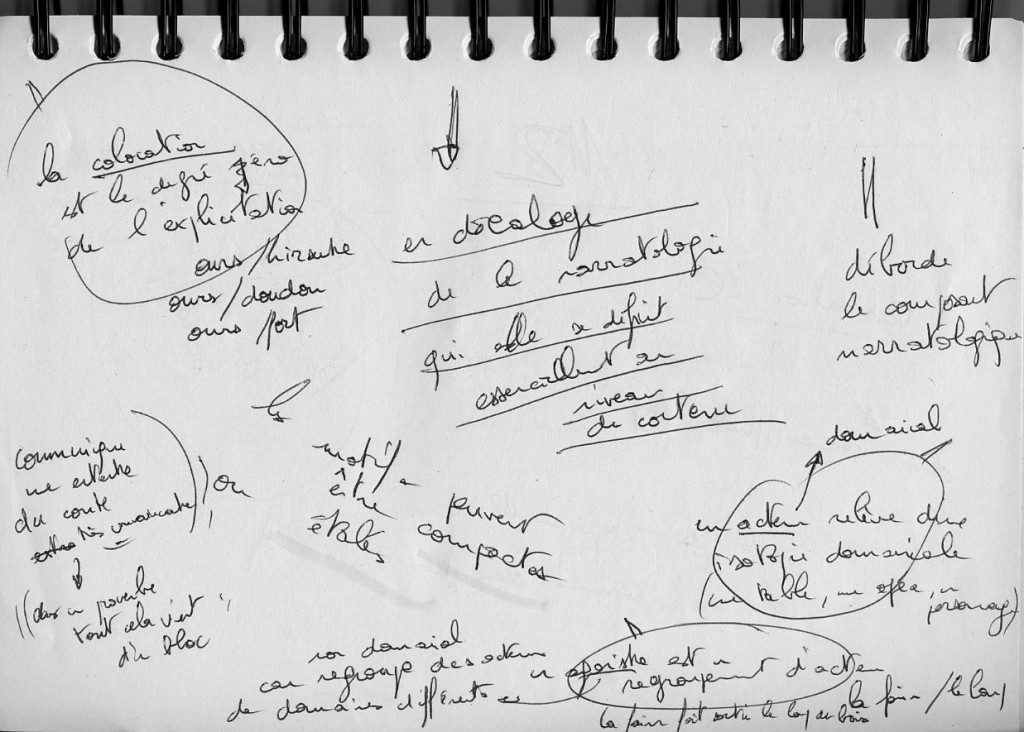 la colocation
est le degré zéro
de l'explicitation
ours/hirsute
ours/doudou
ours fort
en décalage
de la narratologie
qui elle se définit
essentiellement au
niveau
du contenu
déborde
le composant
narratologique
communique
une
du conte
très
dans un proverbe
tout cela vient
d'un bloc
ou
les
motifs
être
étalés
peuvent
compactés
domanial
un acteur relève d'une
isotopie domaniale
(une table, une, un
personnage)
non domanial
car regroupe des acteurs
de domaines différents
un est un
regroupement d'acteurs
la faim / le loup
la faim fait sortir le loup du bois